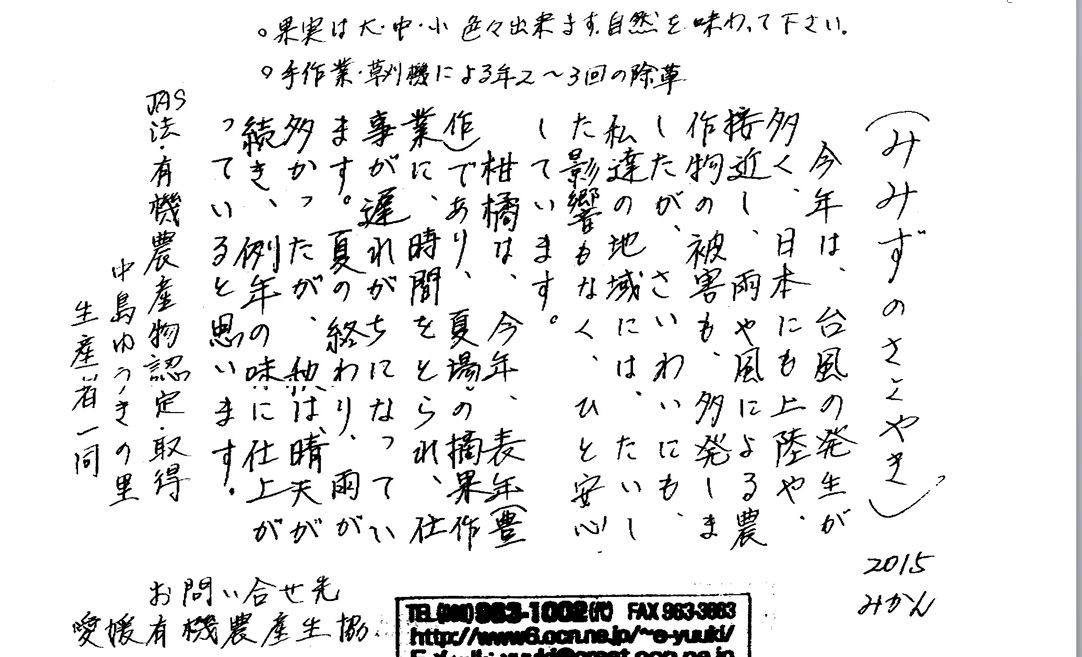 。果実は大・中・小 色々出来ます。自然を味わって下さい。
。手作業・草刈機による年2～3回の除草
（みみずのささやき）
今年は、台風の発生が
多く、日本にも上陸や、
接近し、雨や風による農
作物の被害も、多発しま
したが、さいわいにも、
私達の地域には、たいし
た影響もなく、ひと安心
しています。
柑橘は、今年、表年（豊
作）であり、夏場の摘果作
業に、時間をとられ、仕
事が遅れがちになってい
ます。夏の終わり、雨が
多かったが、秋は、晴天が
続き、例年の味に仕上が
っていると思います。
JAS法・有機農産物認定・取得
中島ゆうきの里
生産者一同
2015
みかん
お問い合せ先
愛媛有機農産生協
963-1002(代) FAX 963-3663
http://www6.ocn.ne.jp/~e-yuuki/